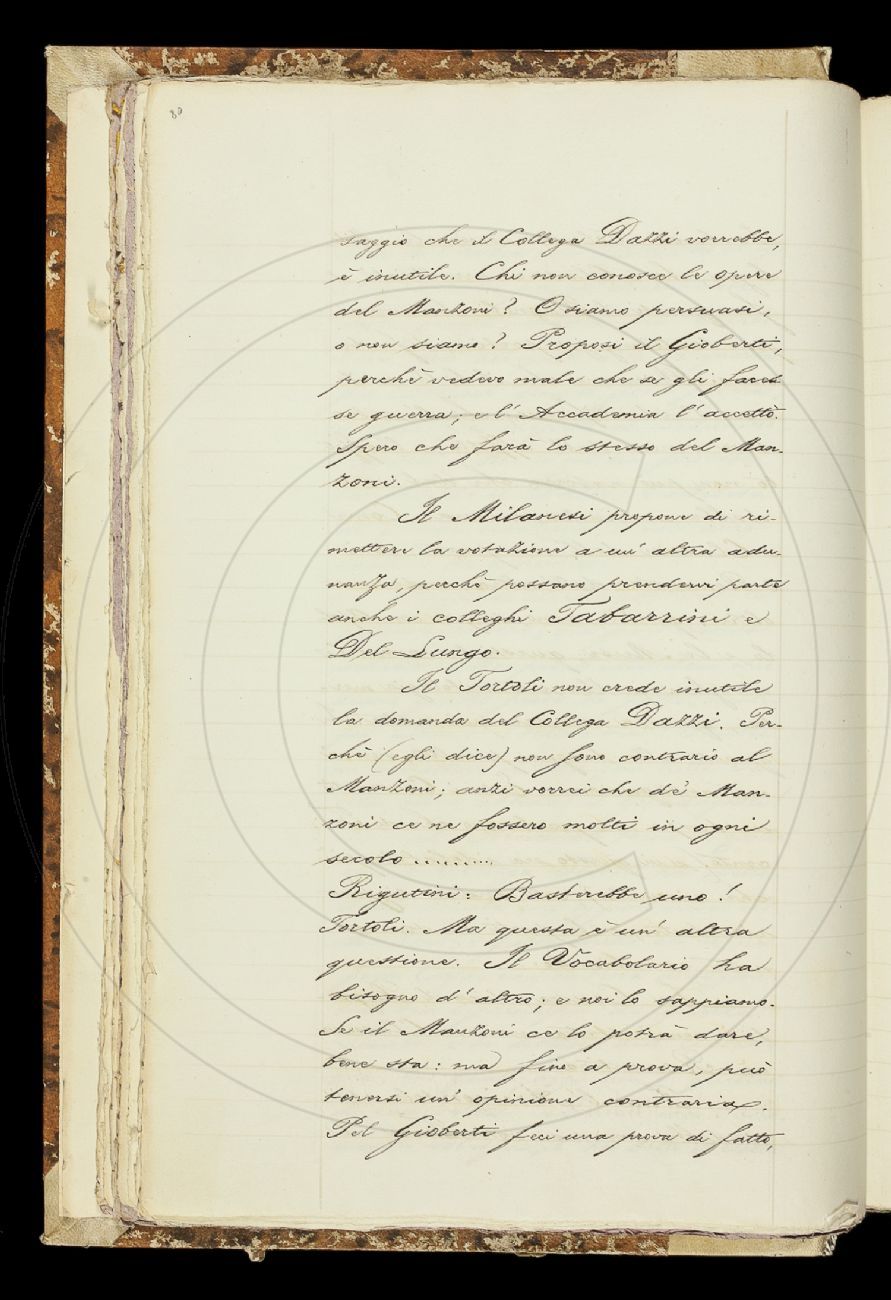 80
saggio che il Collega Dazzi vorrebbe,
è inutile. Chi non conosce le opere
del Manzoni? O siamo persuasi,
o non siamo? Proposi il Gioberti,
perchè vedevo male che se gli faces
se guerra; e l'Accademia l'accettò.
Spero che farà lo stesso del Man-
zoni.
Il Milanesi propone di ri-
mettere la votazione a un' altra adu-
nanza, perchè possano prendervi parte
anche i colleghi Tabarrini e
Del Lungo.
Il Tortoli non crede inutile
la domanda del Collega Dazzi. Per-
chè (egli dice) non sono contrario al
Manzoni; anzi vorrei che de' Man-
zoni ce ne fossero molti in ogni
secolo .........
Rigutini: Basterebbe uno!
Tortoli. Ma questa è un' altra
questione. Il Vocabolario ha
bisogno d' altro; e noi lo sappiamo.
Se il Manzoni ce lo potrà dare,
bene sta: ma fino a prova, può
tenersi un' opinione contraria.
Pel Gioberti feci una prova di fatto,